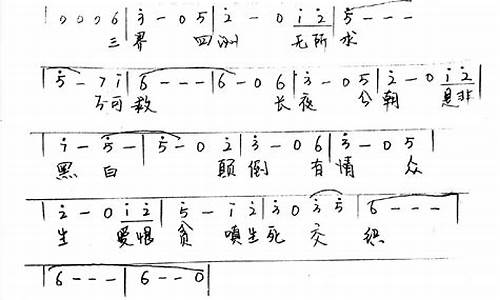 0 0 0 6 | 3̇ - 0 5 | 2̇ - 0 1̇ 2̇ | 5̇ - - -
三界 四洲 无所 求
5̇ - 7 1̇ | 6 - - - | 6 - 0 6 | 3̇ - 0 5 | 2̇ - 0 1̇ 2̇
不可 救 长夜 今朝 是非
1̇ - 5̇ - | 5̇ - 0 2̇ | 3̇ - 0 6 | 3̇ - 0 5
黑 白 颠 倒 有 情 众
2̇ - 0 1̇ 2̇ | 5̇ - 1̇ 2̇ | 3̇ 0 3̇ 5̇ | 6 - - -
生 爱恨 贪 嗔生死 交 织
6 - - - | 6 - - 0